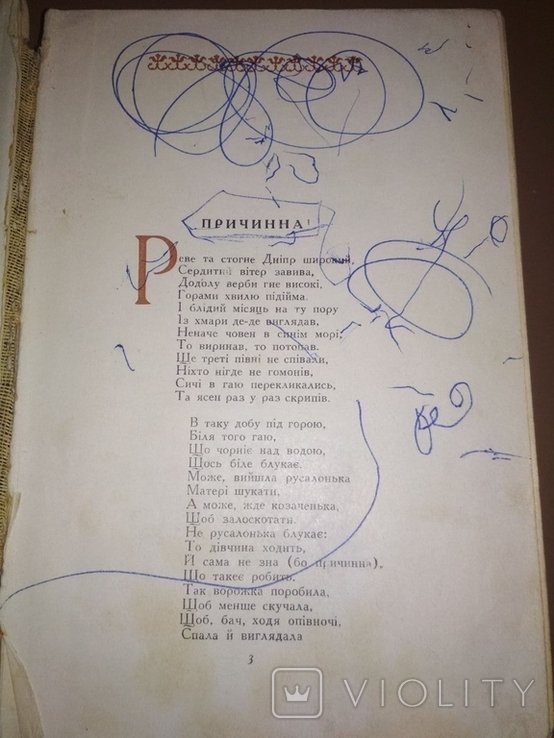 ПРИЧИННА
Реве та стогне Дніпр широкий,
Сердитий вітер завива,
Додолу верби гне високі,
Горами хвилю підійма.
І блідий місяць на ту пору
Із хмари де-де виглядав,
Неначе човен в синім морі,
То виринав, то потопав.
Ще треті півні не співали,
Ніхто нігде не гомонів,
Сичі в гаю перекликались,
Та ясен раз у раз скрипів.
В таку добу під горою,
Біля того гаю,
Що чорніє над водою,
Щось біле блукає.
Може, вийшла русалонька
Матері шукати,
А може, жде козаченька,
Щоб залоскотати.
Не русалонька блукає:
То дівчина ходить,
Й сама не зна (бо причинна),
Що такеє робить.
Так ворожка поробила,
Щоб менше скучала,
Щоб, бач, ходя опівночі,
Спала й виглядала
3
VIOLITY